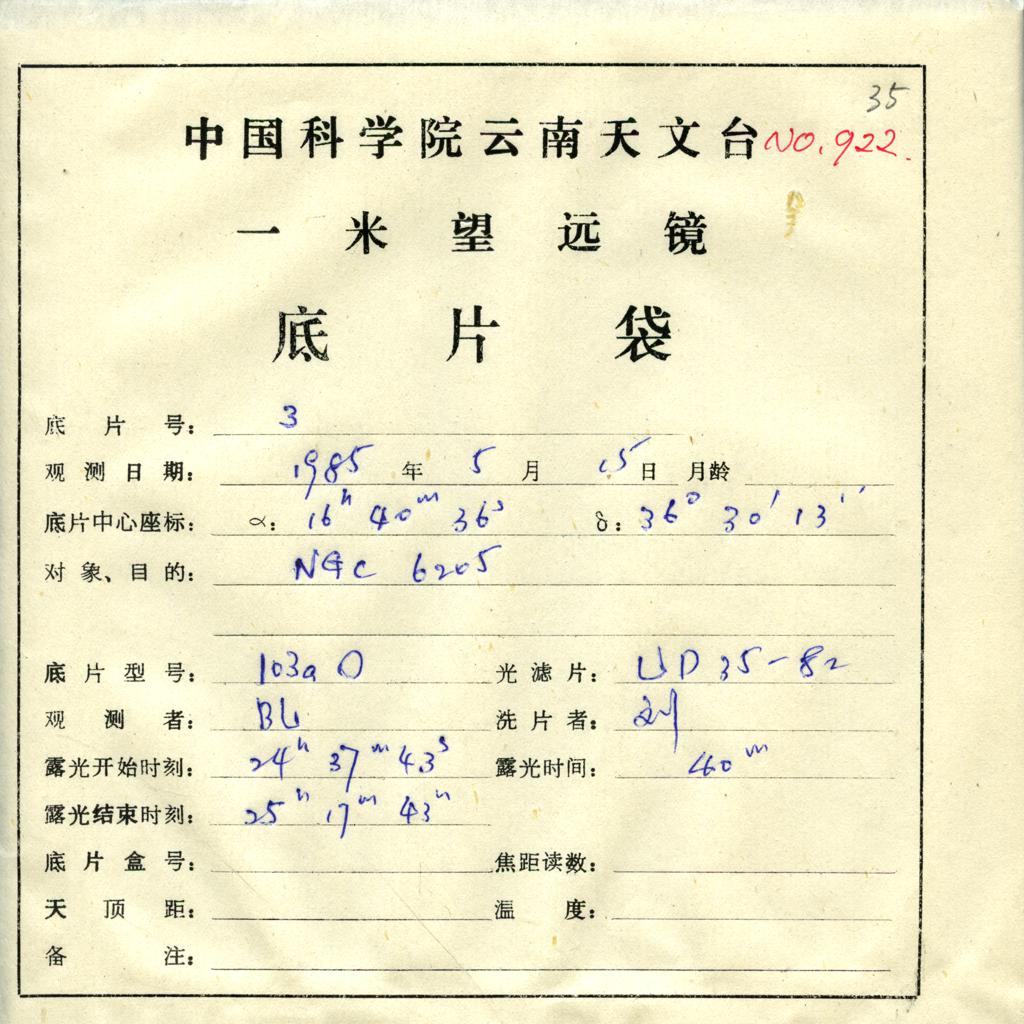 35
中国科学院云南天文台 NO.922.
一米望远镜
底片袋
底片号: 3
观测日期: 1985 年 5 月 15 日 月龄
底片中心座标: α: 16h 40m 36s δ: 36° 30′ 13″
对象、目的: NGC 6205
底片型号: 103aO 光滤片: UD 35-82
观测者: BL 洗片者: 刘
露光开始时刻: 24h 37m 43s 露光时间: 40m
露光结束时刻: 25h 17m 43s
底片盒号: 焦距读数:
天顶距: 温度:
备注: